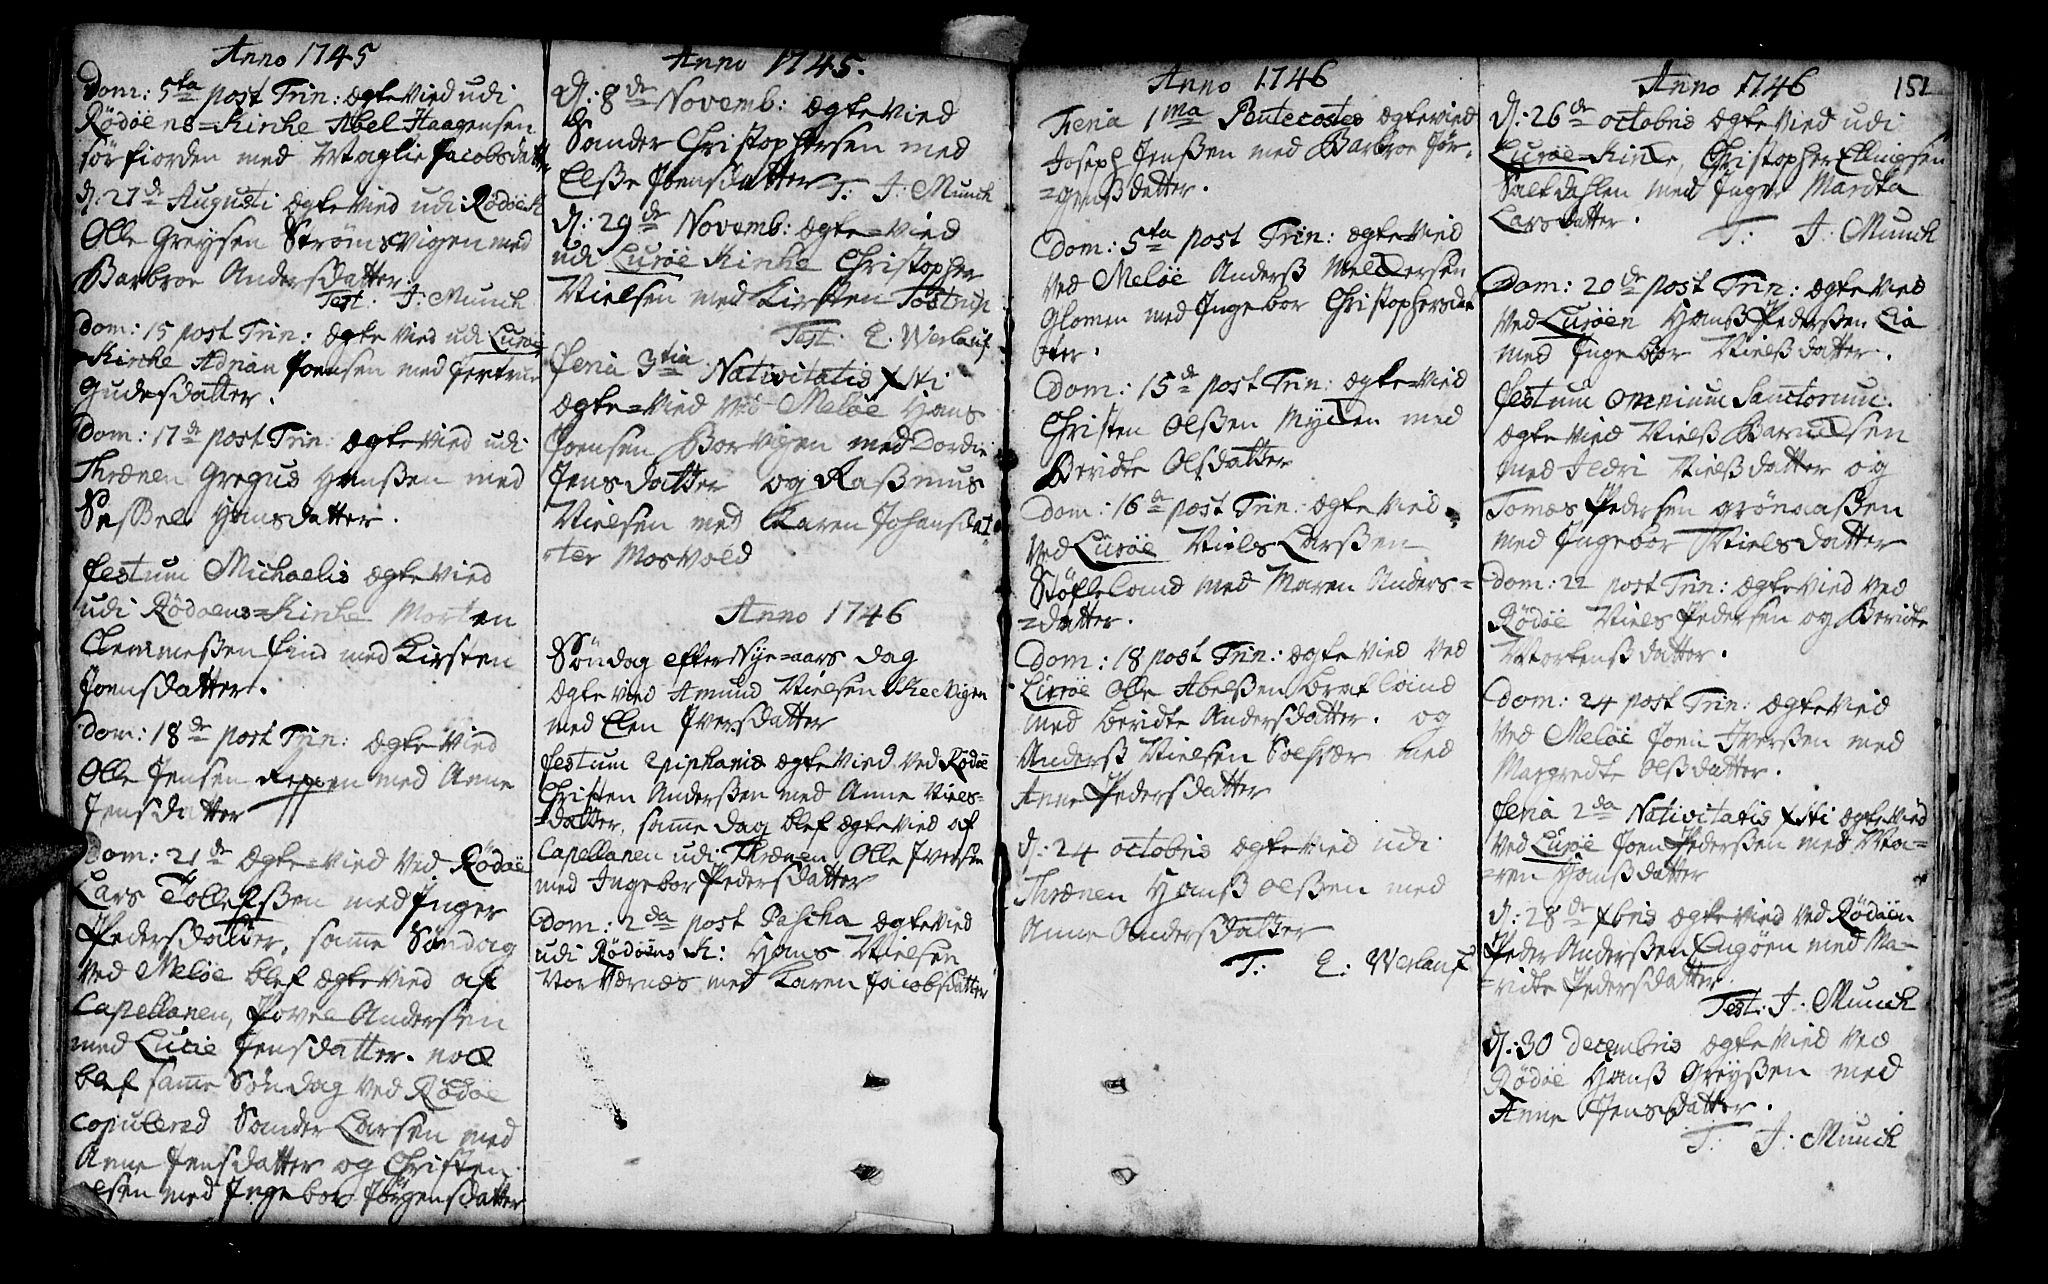 Anno 1745
Dom: 5ta post Trin: ægtevied udi
Rödöens=Kirche Abel Haagensen
sörfiorden med Maglie Jacobsdatt
d: 27de Augusti ægtevied udi Rödöe K
Olle Greysen Strömsvigen med
Barbroe Andersdatter.
Test. J: Munch
Dom: 15 post Trin: ægtevied udi Luröe
Kirche Adrian Joensen med Gertrue
Gudesdatter.
Dom: 17de post Trin: ægtevied udi
Thrænen Gregus Hanßen med
Seßel Hansdatter.
festum Michaelis ægtevied
udi Rödöens=Kirche Morten
Clemmeßen find med Kirsten
Joensdatter.
Dom: 18de post Trin: ægtevied
Olle Jensen Reppen med Anne
Jensdatter
Dom: 21de ægte=vied ved Rödöe
Lars Tollefßen med Inger
Pedersdatter, samme Söndag
ved Melöe blef ægtevied af
Capellanen, Povel Andersen
med Lucie Jensdatter. nock
blef samme Söndag ved Rödöe
copulered Sander Larsen med
Anne Jensdatter og Christen
olsen med Ingebor Jörgensdatter
Anno 1745.
d: 8de Novemb: ægtevied
Sander Christophersen med
Elße Joensdatter T: J: Munch
d: 29de Novemb: ægte=vied
udi Luröe Kirche Christopher
Nielsen med Kirsten Tostrup
Test. E. Werlauf
feria 3tia Nativitatis Xsti
ægte=vied ved Melöe Hans
Joensen Borvigen med Dordie
Jensdatter og Raßmus
Nielsen med Karen Johansdat
ter Mosvold
Anno 1746
Söndag efter Nye=aars dag
ægtevied Amund Nielsen Skeevigen
med Elen Iversdatter
festum Epiphanis ægtevied ved Rödöe
Christen Anderßen med Anne Niels=
=datter, samme dag blef ægtevied af
Capellanen udi Thrænen, Olle Iversen
med Ingebor Pedersdatter
Dom: 2da post Pascha ægtevied
udi Rödöens K: Hans Nielsen
Nor Værnæs med Karen Jacobsdatter
Anno 1746
Feria 1ma Pentecostes ægtevied
Joseph Jenßen med Barbroe Jör=
=genßdatter.
Dom: 5ta post Trin: ægtevied
ved Melöe Anderß Melchersen
Glomen med Ingebor Christophersda
tter.
Dom: 15de post Trin: ægte=vied
Christen Olßen Mycken med
Beridte Olsdatter
Dom: 16de post Trin: ægtevied
ved Luröe Niels Larßen
Stöfleland med Maren Anders=
=datter.
Dom: 18 post Trin: ægtevied ved
Luröe Olle Abelßen bratland
med beridte Andersdatter. og
Anderß Nielsen Solvær med
Anne Pedersdatter
d: 24 octobris ægtevied udi
Thrænen Hanß Olßen med
Anne Andersdatter
T: E: Werlauf
Anno 1746
151
d: 26de octobris ægtevied udi
Luröe Kirche, Christopher Ellingsen
Saltdahlen med Inger Martha
Larsdatter.
T: J: Munch
Dom: 20de post Trin: ægtevied
ved Luröen Hanß Pederßen Lia
med Ingebor Nielßdatter.
festum omnium Sanctorum:
ægtevied Nielß Barndsen
med Sidri Nielßdatter og
Tomas Pedersen grönaaßen
med Ingebor Nielsdatter
Dom: 22 post Trin: ægtevied ved
Rödöe Niels Pedersen og Beridte
Mortenßdatter.
Dom: 24 post Trin: ægtevied
ved Melöe Joen Iverßen med
Margredte Olßdatter.
feria 2da Nativitatis Xsti ægtevied
ved Luröe Joen Pederßen med Ma=
=ren Hanßdatter
d: 28de Xbris ægtevied ved Rödöen
Peder Anderßen Engöen med Ma=
=ridte Pedersdatter
Test: J: Munch
d: 30 Decembris ægtevied ved
Rödöe Hanß Greyßen med
Anne Jensdatter.
T: J: Munch